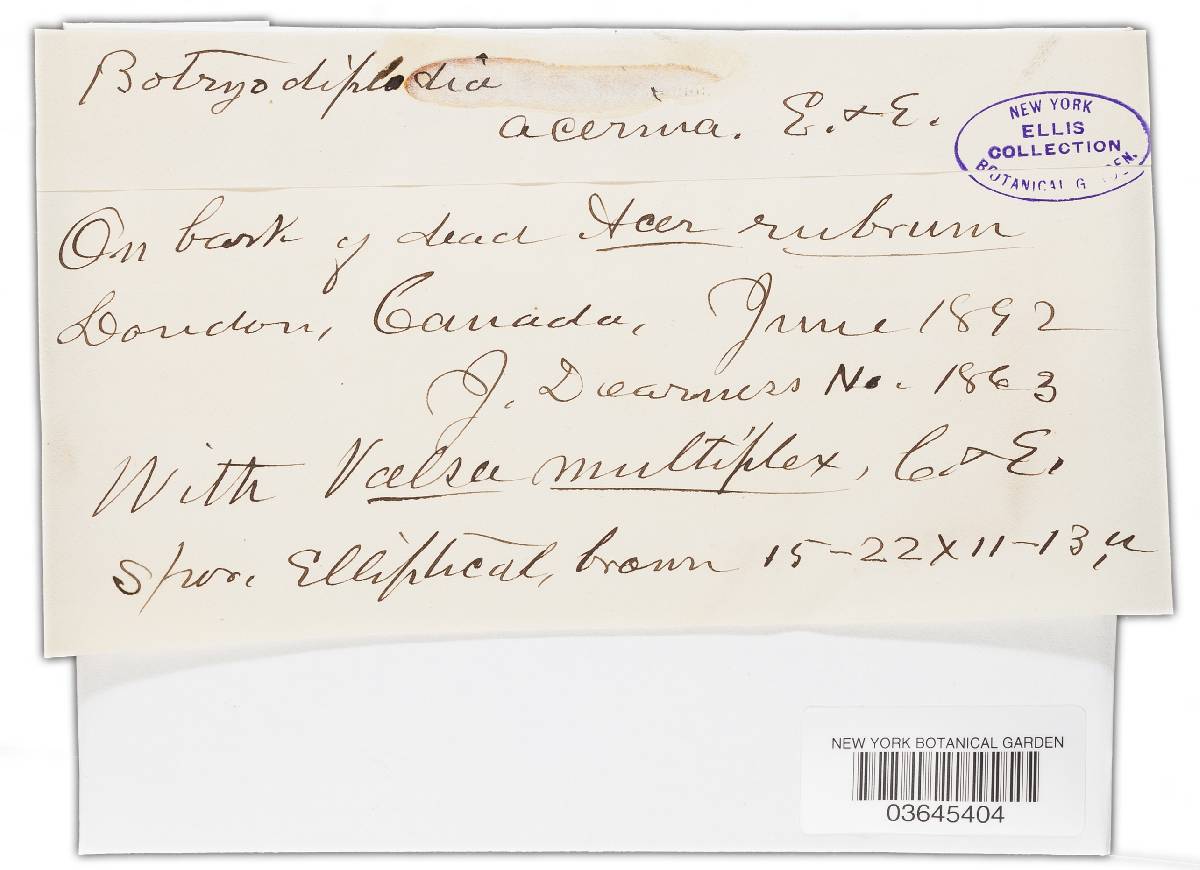 Botryodiplodia
acerina. E. & E.
NEW YORK
ELLIS
COLLECTION
BOTANICAL G DEN.
On bark of dead Acer rubrum
London, Canada, June 1892
J. Dearness No. 1863
With Valsa multiplex, C & E.
Spor. Elliptical, brown 15-22 x 11-13 µ
NEW YORK BOTANICAL GARDEN
03645404